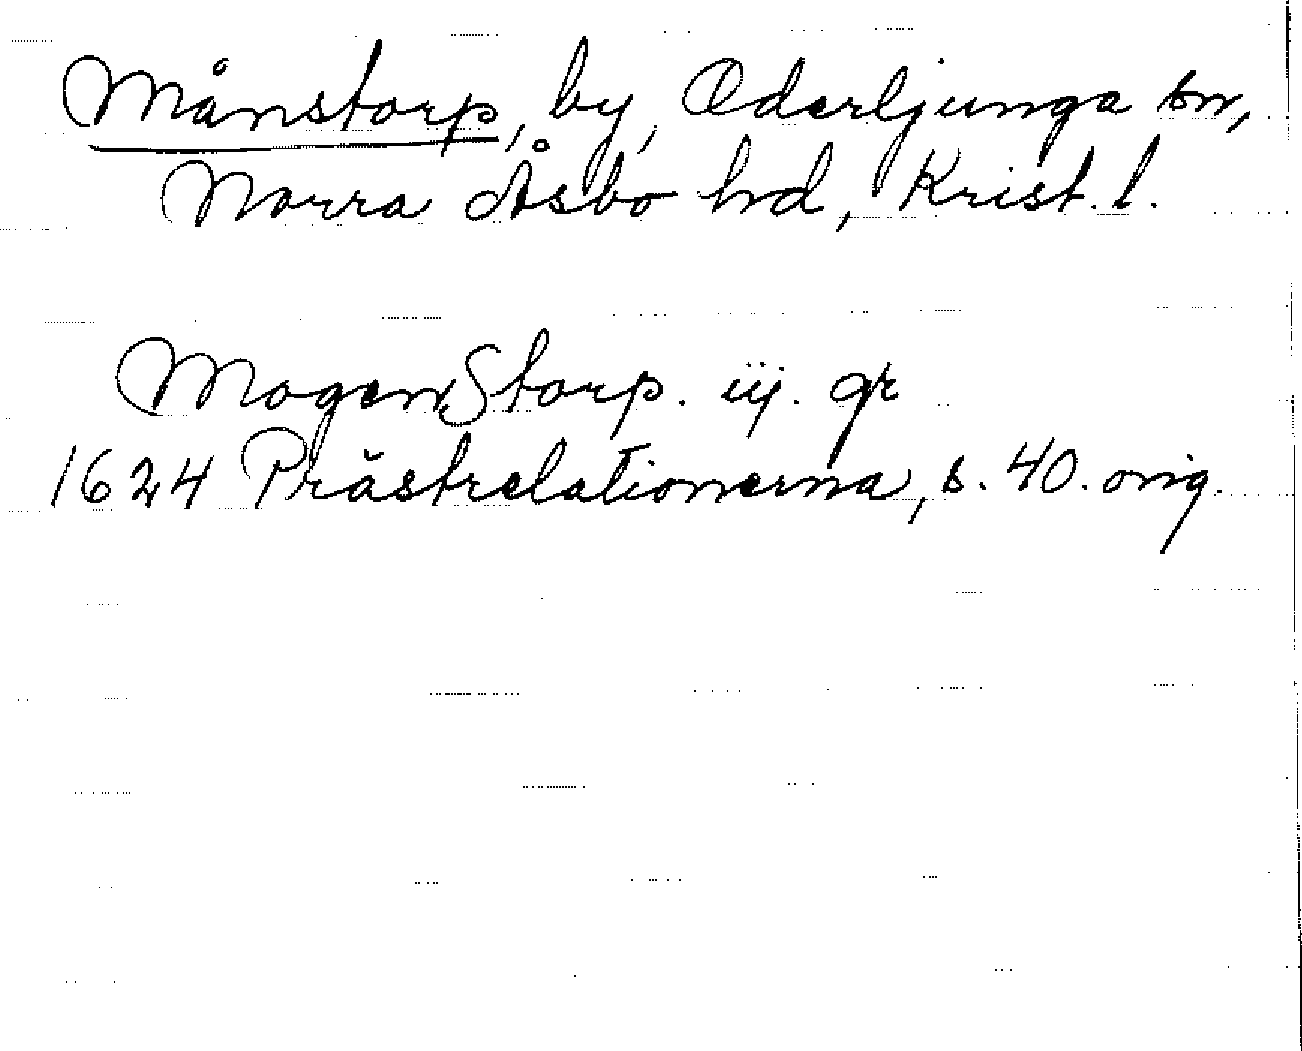 Månstorp, by, Oderljunga sn,
Norra Åsbo hd, Krist. l.
MogenStorp. iij. gr
1624 Prästrelationerna, s. 40. orig.